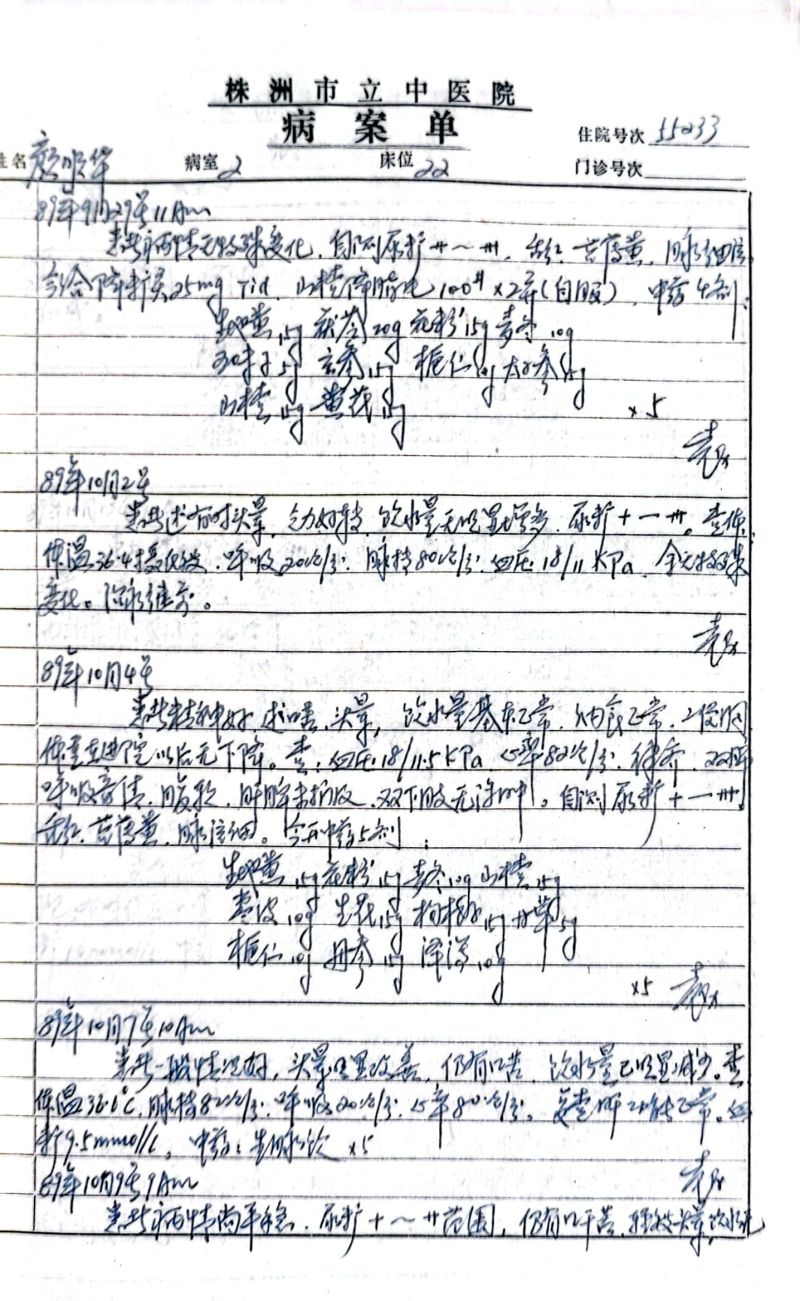 株洲市立中医院
病案单
住院号次 55233
姓名 病室 2 床位 22 门诊号次
89年9月29号11Am
患者病情无特殊变化，自测尿糖++～+++，舌红，苔薄黄，脉细
今给降糖灵25mg Tid 山楂降脂 100# ×2 (自服)，中药4剂：
生地黄15g 茯苓20g 花粉15g 麦冬10g
五味子5g 玄参15g 栀仁10g 太子参15g
山楂15g 黄芪15g ×5
袁
89年10月2号
患者述有时头晕，乏力好转，饮水量无明显增多，尿糖+—+++。查体：
体温36.4摄氏度，呼吸20次/分，脉搏80次/分，血压：18/11KPa，余无特殊
变化。
袁
89年10月4号
患者精神好，述口苦，头晕，饮水量基本正常，纳食正常，二便调
体重至进院以后无下降。查：血压：18/11.5KPa 心率82次/分，律齐，双肺
呼吸音清，腹软，肝脾未扪及，双下肢无浮肿。自测尿糖+—+++。
舌红，苔薄黄，脉弦细。今再中药5剂：
生地黄15g 花粉15g 麦冬10g 山楂15g
枣皮10g 生芪15g 枸杞15g 甘草5g
栀仁10g 丹参15g 泽泻10g
×5 袁
89年10月7号10Am
患者一般情况好，头晕明显改善，仍有口苦，饮水量已明显减少。查：
体温36.1℃，脉搏82次/分，呼吸20次/分，心率80次/分。复查肝功能正常。血
糖9.5mmol/L。中药：生脉饮 ×5
袁
89年10月9号9Am
患者病情尚平稳，尿糖+～++范围，仍有口干苦，轻微头晕，